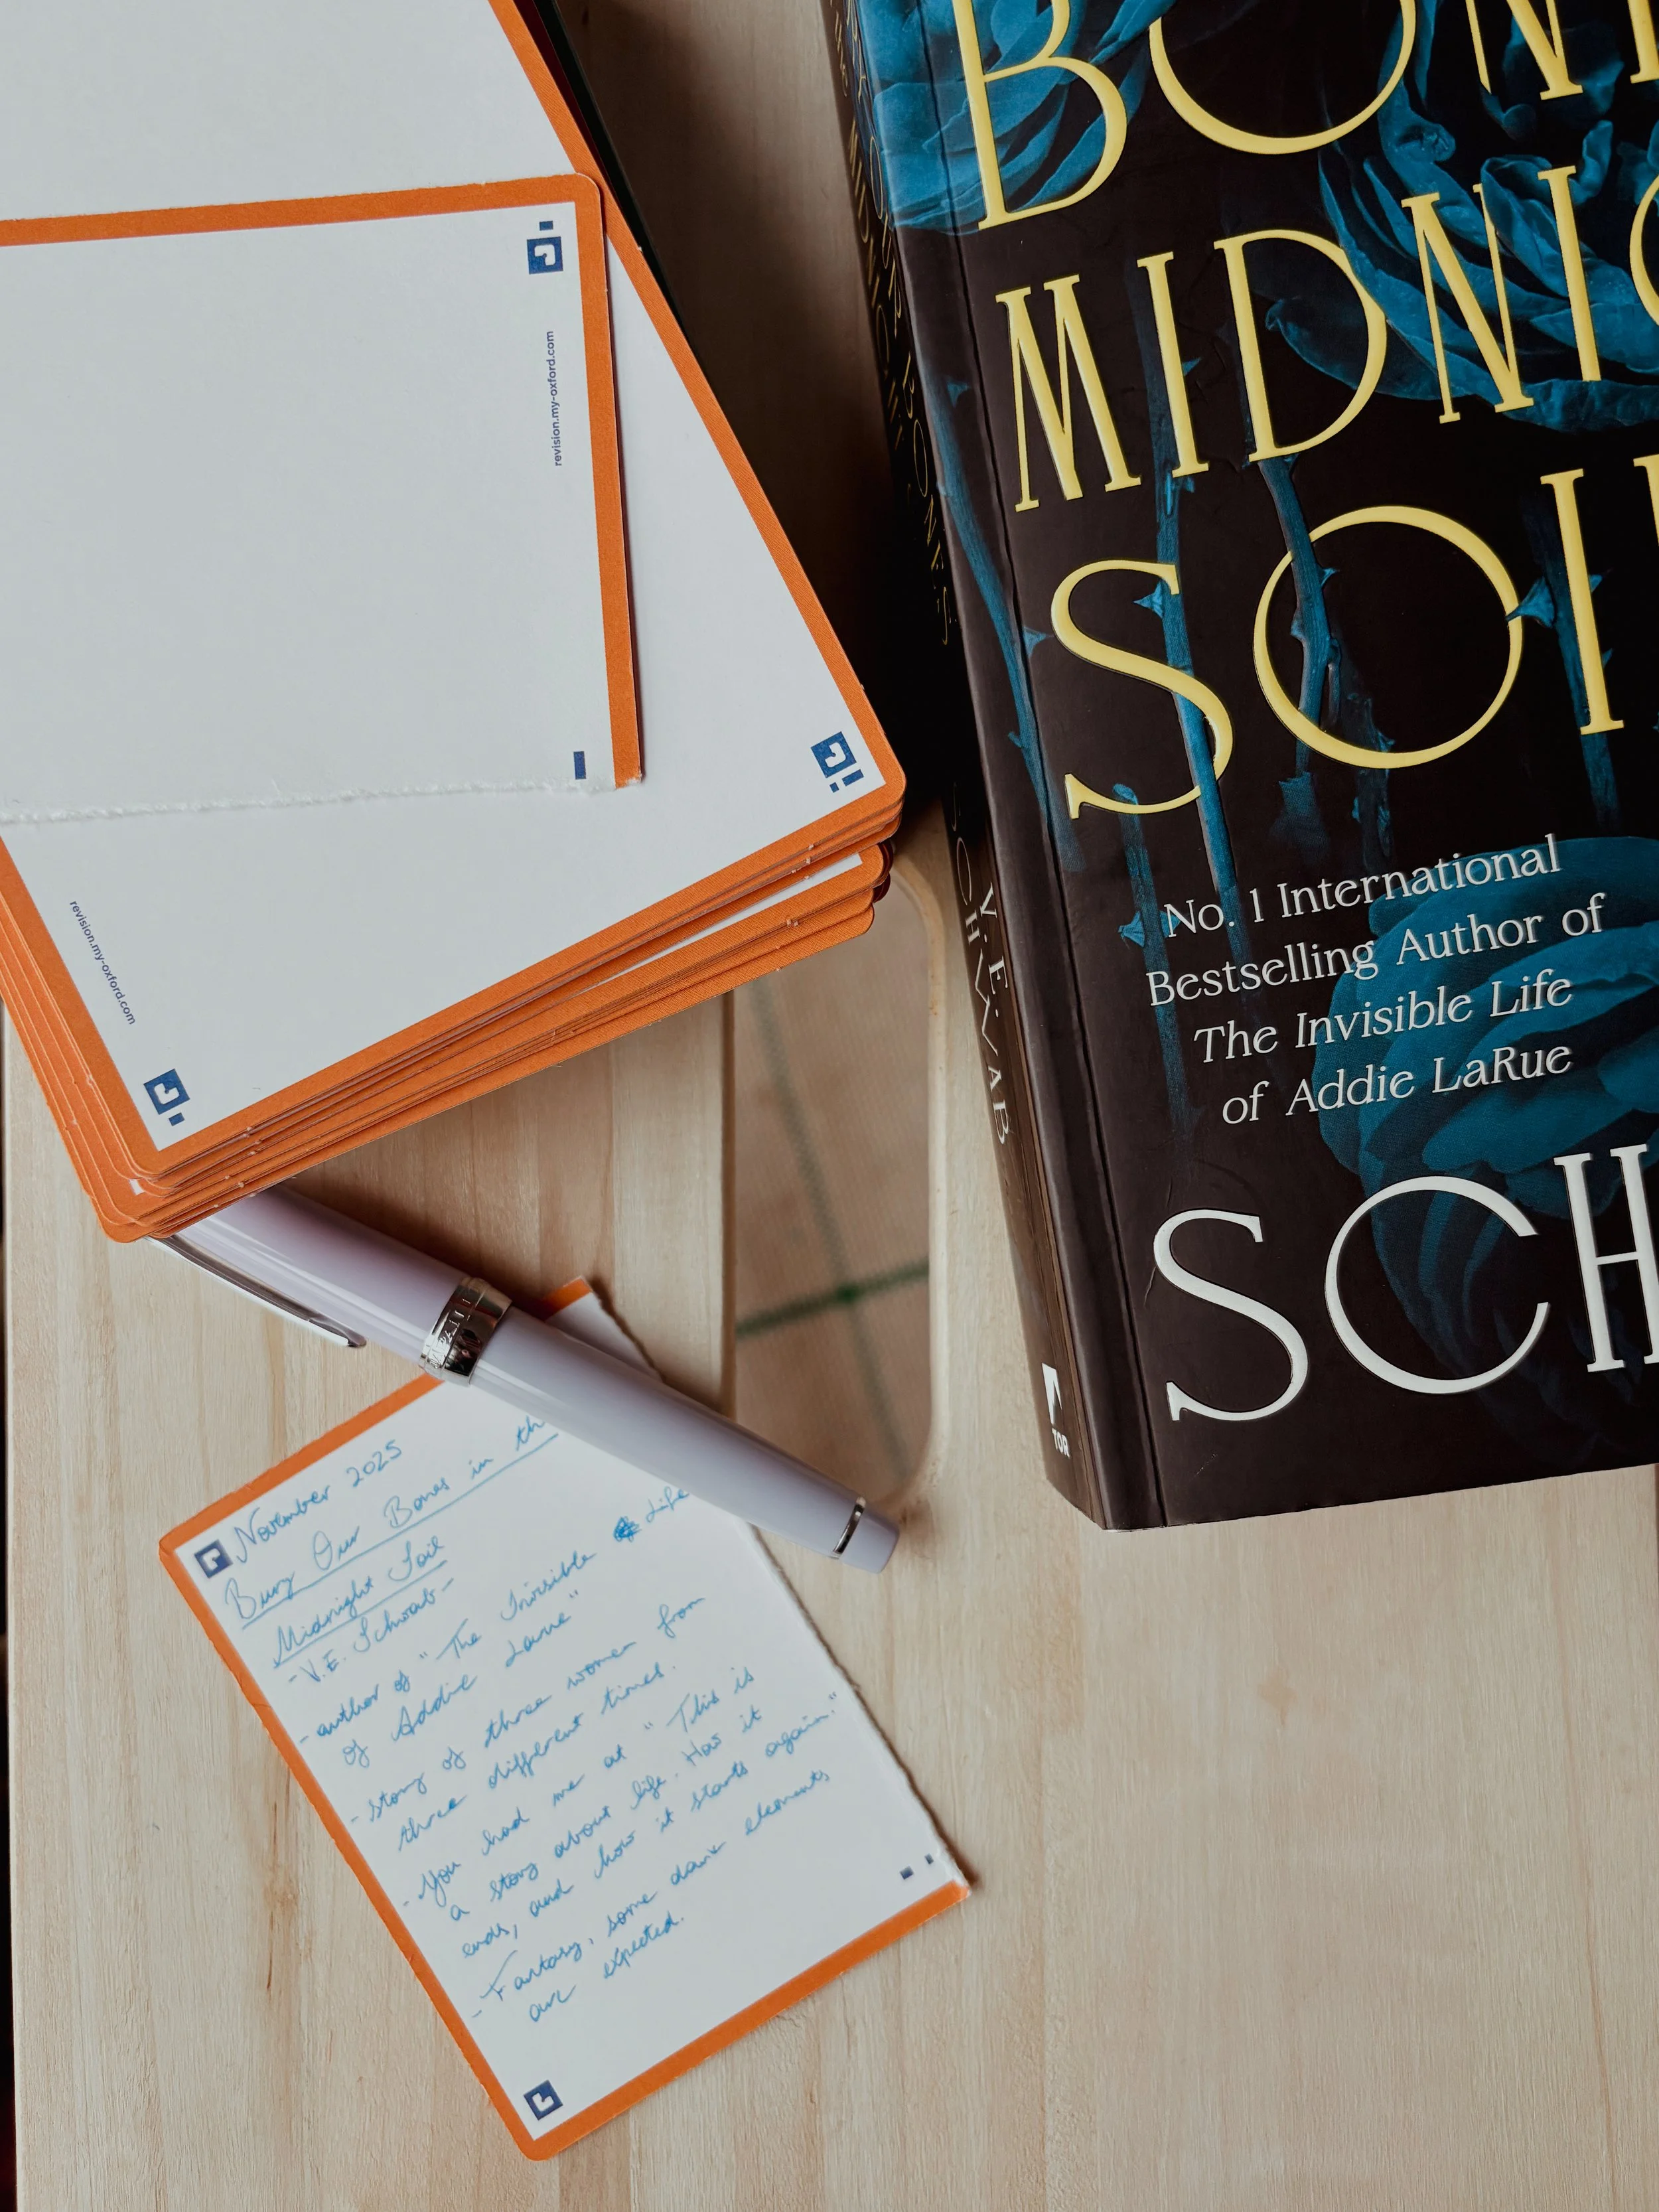 revision.my-oxford.com
revision.my-oxford.com
BON
MIDNIG
SOIL
No. 1 International
Bestselling Author of
The Invisible Life
of Addie LaRue
SCH
BURY OUR BONES
IN THE MIDNIGHT
SOIL
V. E.
SCHWAB
TOR
November 2025
Bury Our Bones in th
Midnight Soil
- V.E. Schwab -
- author of "The Invisible Life
of Addie Larue"
- story of three women from
three different times.
- You had me at "This is
a story about life. How it
ends, and how it starts again."
- Fantasy, some dark elements
are expected.